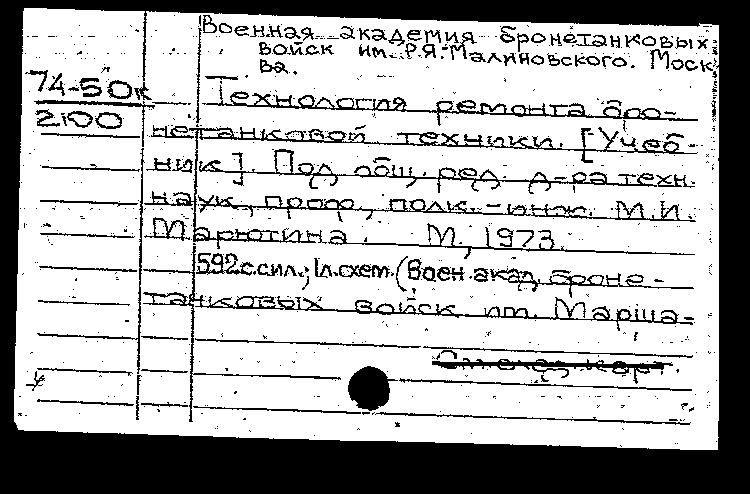 Военная академия бронетанковых
войск им. Р.Я. Малиновского. Моск
ва.
74-50к
2100
Технология ремонта бро-
нетанковой техники. [Учеб-
ник]. Под общ. ред. д-ра техн.
наук, проф., полк.-инж. М.И.
Марютина. М., 1973.
592с.сил.; 1л.схем. (Воен.акад. броне-
танковых войск им. Марша-